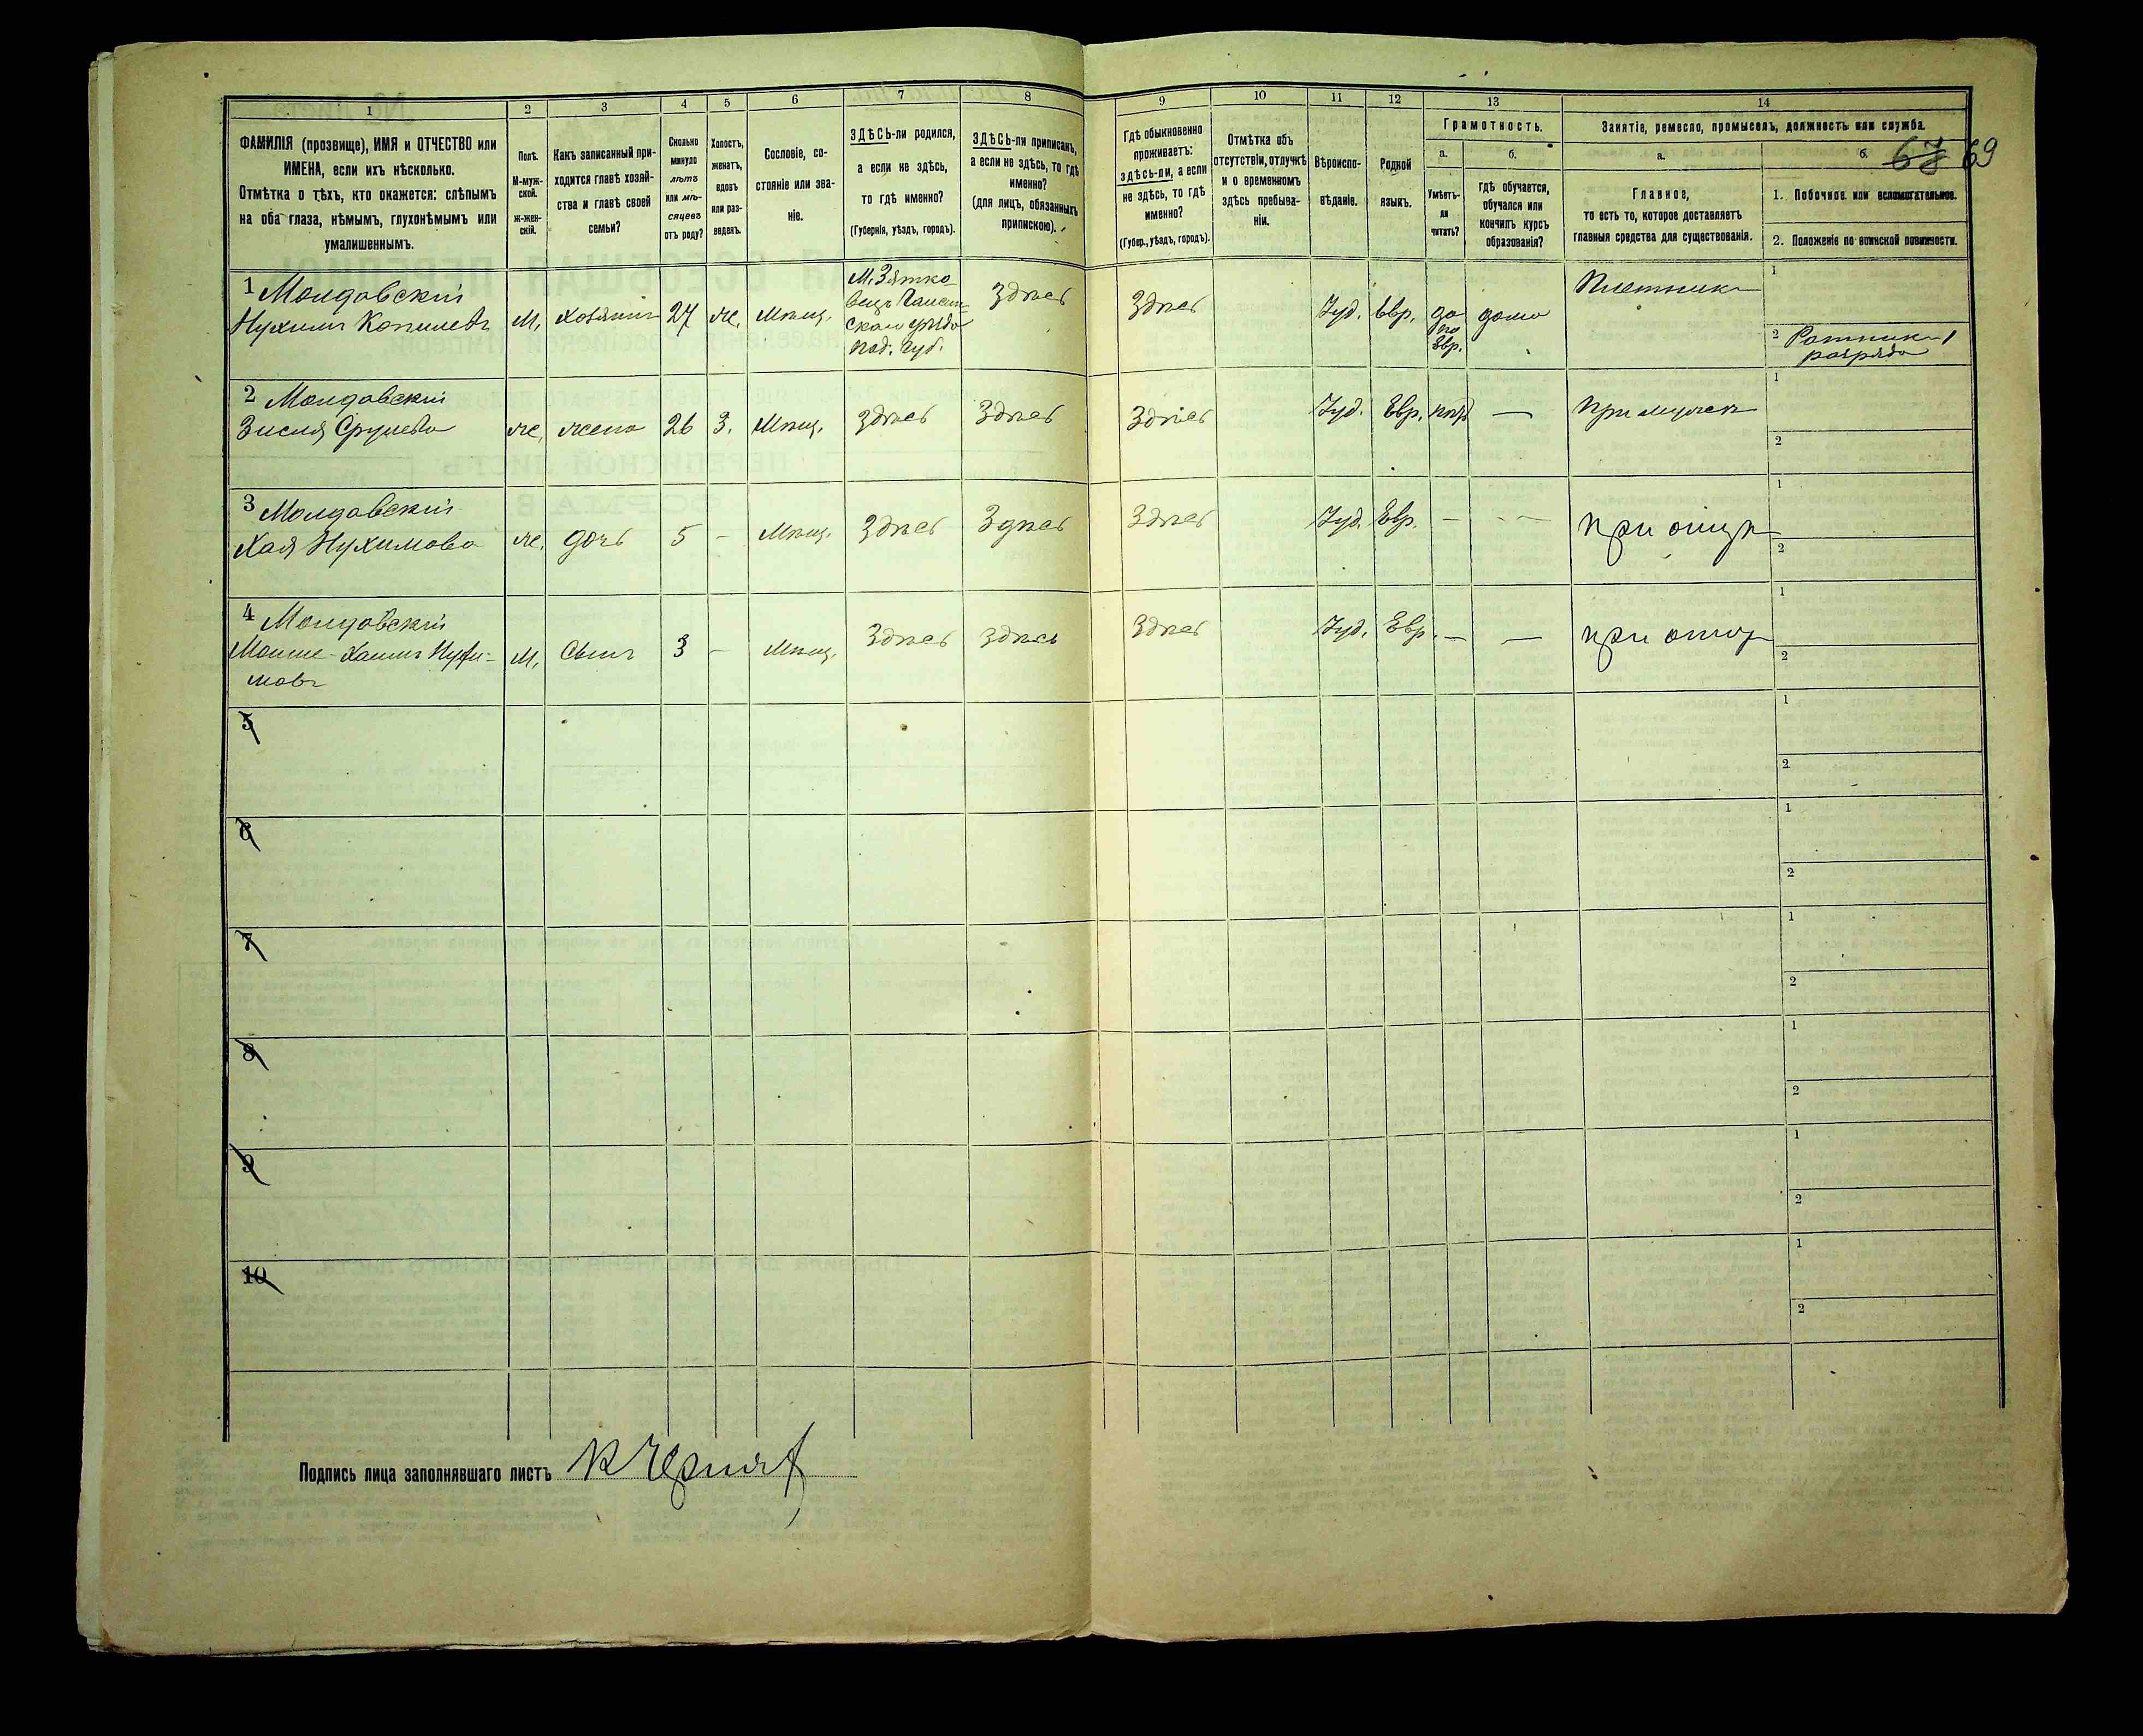 1
2
3
4
5
6
7
8
9
10
11
12
13
14
ФАМИЛІЯ (прозвище), ИМЯ и ОТЧЕСТВО или
ИМЕНА, если ихъ нѣсколько.
Отмѣтка о тѣхъ, кто окажется: слѣпымъ
на оба глаза, нѣмымъ, глухонѣмымъ или
умалишеннымъ.
Полъ.
М-муж-
ской.
ж-жен-
скій.
Какъ записанный при-
ходится главѣ хозяй-
ства и главѣ своей
семьи?
Сколько
минуло
лѣтъ
или мѣ-
сяцевъ
отъ роду?
Холостъ,
женатъ,
вдовъ
или раз-
веденъ.
Сословіе, со-
стояніе или зва-
ніе.
ЗДѢСЬ-ли родился,
а если не здѣсь,
то гдѣ именно?
(Губернія, уѣздъ, городъ).
ЗДѢСЬ-ли приписанъ,
а если не здѣсь, то гдѣ
именно?
(для лицъ, обязанныхъ
припискою).
Гдѣ обыкновенно
проживаетъ:
здѣсь-ли, а если
не здѣсь, то гдѣ
именно?
(Губер., уѣздъ, городъ).
Отмѣтка объ
отсутствіи, отлучкѣ
и о временномъ
здѣсь пребыва-
ніи.
Вѣроиспо-
вѣданіе.
Родной
языкъ.
Грамотность.
а.
б.
Умѣетъ-
ли
читать?
гдѣ обучается,
обучался или
кончилъ курсъ
образованія?
Занятіе, ремесло, промыселъ, должность или служба.
а.
б.
67 69
Главное,
то есть то, которое доставляетъ
главныя средства для существованія.
1. Побочное или вспомогательное.
2. Положеніе по воинской повинности.
1 Молдовскій
Нухимъ Копилевъ
М.
хозяинъ
27
ж.
Мѣщ.
М. Зятко
вецъ Гайсин-
скаго уѣзда
под. губ.
Здѣсь
Здѣсь
Іуд.
Евр.
да
по
Евр.
дома
Плотникъ
1
2 Ратникъ 1
разряда
2 Молдовскій
Зисля Срулева
ж.
жена
26
З.
Мѣщ.
Здѣсь
Здѣсь
Здѣсь
Іуд.
Евр.
нѣтъ
—
при мужѣ
1
2
3 Молдовскій
Хая Нухимова
ж.
дочь
5
-
Мѣщ.
Здѣсь
Здѣсь
Здѣсь
Іуд.
Евр.
—
—
при отцѣ
1
2
4 Молдовскій
Мошко-Хаимъ Нухи-
мовъ
М.
Сынъ
3
-
Мѣщ.
Здѣсь
здѣсь
Здѣсь
Іуд.
Евр.
—
—
при отцѣ
1
2
5
1
2
6
1
2
7
1
2
8
1
2
9
1
2
10
1
2
Подпись лица заполнявшаго листъ